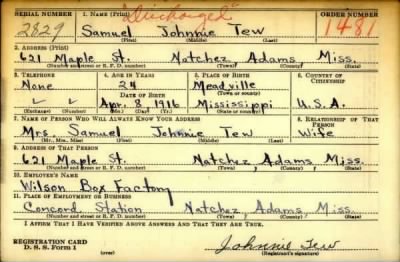 SERIAL NUMBER 1. NAME (Print) "Discharged" ORDER NUMBER
2829 Samuel Johnnie Tew 1481
(First) (Middle) (Last)
2. ADDRESS (Print)
621 Maple St. Natchez, Adams Miss.
(Number and street or R. F. D. number) (Town) (County) (State)
3. TELEPHONE 4. AGE IN YEARS 5. PLACE OF BIRTH 6. COUNTRY OF CITIZENSHIP
None 24 Meadville
DATE OF BIRTH
Apr. 8, 1916 Mississippi U.S.A.
(Exchange) (Number) (Mo.) (Day) (Yr.) (State or country)
7. NAME OF PERSON WHO WILL ALWAYS KNOW YOUR ADDRESS 8. RELATIONSHIP OF THAT PERSON
Mrs. Samuel Johnnie Tew Wife
(Mr., Mrs., Miss) (First) (Middle) (Last)
9. ADDRESS OF THAT PERSON
621 Maple St. Natchez, Adams, Miss.
(Number and street or R. F. D. number) (Town) (County) (State)
10. EMPLOYER'S NAME
Wilson Box Factory
11. PLACE OF EMPLOYMENT OR BUSINESS
Concord Station Natchez, Adams, Miss.
(Number and street or R. F. D. number) (Town) (County) (State)
I AFFIRM THAT I HAVE VERIFIED ABOVE ANSWERS AND THAT THEY ARE TRUE.
REGISTRATION CARD
D. S. S. Form 1 (over) Johnnie Tew
(Registrant's signature)